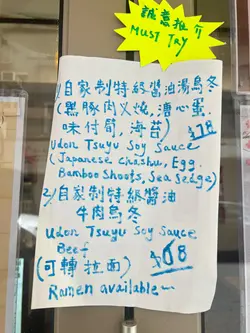 誠意推介
MUST TAY
1) 自家制特級醬油湯烏冬
(黑豚肉叉燒, 溏心蛋,
味付筍, 海苔)
$78
Udon Tsuyu Soy Sauce
(Japanese Chashu, Egg.
Bamboo Shoots, Sea Sedge)
2) 自家制特級醬油
牛肉烏冬
Udon Tsuyu Soy Sauce
Beef
(可轉拉面)
Ramen available~